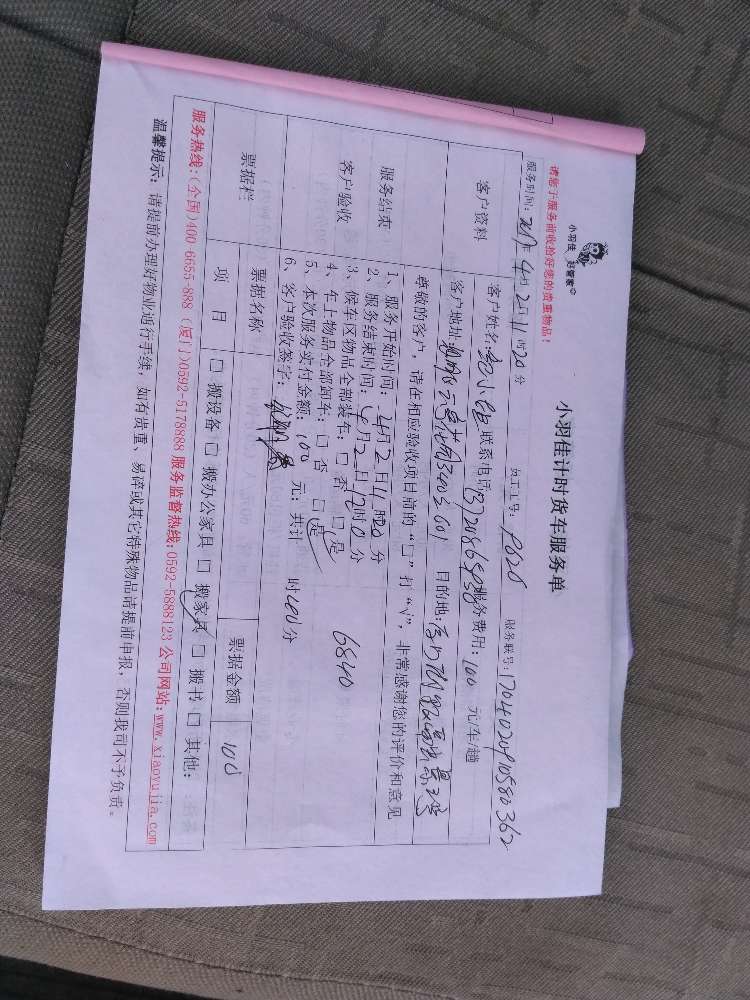 小羽佳 好管家
请您于服务前收拾好您的贵重物品!
小羽佳计时货车服务单
服务时间: 2017年4月2日11时20分 员工工号: P020 服务联号: 1704020910580362
客户资料
客户姓名: 小姐 联系电话: 服务费用: 100 元/车/趟
客户地址: 3403 601 目的地:
尊敬的客户, 请在相应验收项目前的“□”打“√”, 非常感谢您的评价和意见
服务结束
客户验收
1、服务开始时间: 4月2日11时20分
2、服务结束时间: 4月2日12时0分
3、候车区物品全部装车: □ 否 □ 是
4、车上物品全部卸车: □ 否 □ 是
5、本次服务实付金额: 100 元; 共计 时 40 分
6、客户验收签字:
6840
票据栏
票据名称 票据金额 100
项 目 □ 搬设备 □ 搬办公家具 □ 搬家具 □ 搬书 □ 其他:
服务热线:(全国)400-6655-888 (厦门)0592-5178888 服务监督热线:0592-5888123 公司网站:www.xiaoyujia.com
温馨提示: 请提前办理好物业通行手续, 如有贵重、易碎或其它特殊物品请提前申报, 否则我司不予负责。